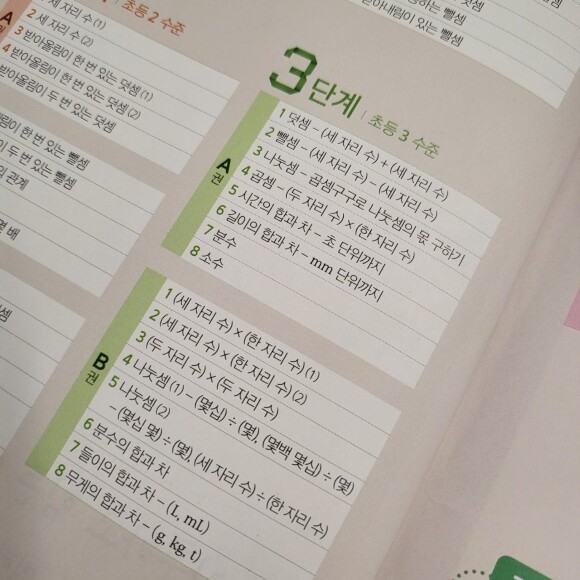 초등 2 수준
A
권
세 자리 수 (1)
2 세 자리 수 (2)
3 받아올림이 한 번 있는 덧셈
4 받아올림이 한 번 있는 덧셈 (1)
받아올림이 한 번 있는 덧셈 (2)
받아올림이 두 번 있는 덧셈
한 번 있는 뺄셈
두 번 있는 뺄셈
관계
배
하는 뺄셈
받아내림이 있는 뺄셈
3단계 초등 3 수준
A
권
1 덧셈 – (세 자리 수) + (세 자리 수)
2 뺄셈 – (세 자리 수) – (세 자리 수)
3 나눗셈 – 곱셈구구로 나눗셈의 몫 구하기
4 곱셈 – (두 자리 수) × (한 자리 수)
5 시간의 합과 차 – 초 단위까지
6 길이의 합과 차 – mm 단위까지
7 분수
8 소수
B
권
1 (세 자리 수) × (한 자리 수) (1)
2 (세 자리 수) × (한 자리 수) (2)
3 (두 자리 수) × (두 자리 수)
4 나눗셈 (1) – (몇십) ÷ (몇), (몇백 몇십) ÷ (몇)
5 나눗셈 (2)
– (몇십 몇) ÷ (몇), (세 자리 수) ÷ (한 자리 수)
6 분수의 합과 차
7 들이의 합과 차 – (L, mL)
8 무게의 합과 차 – (g, kg, t)